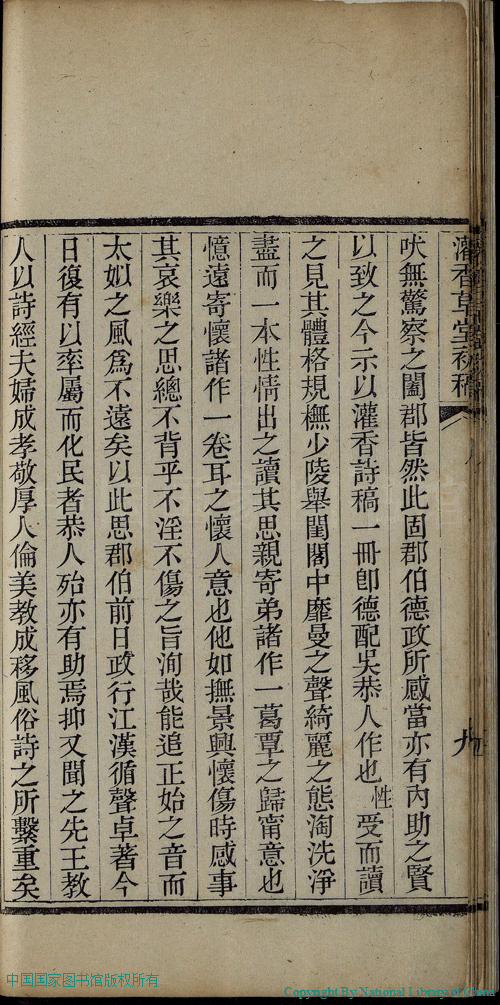 灌香草堂初稿
九
吠無驚察之闔郡皆然此固郡伯德政所感當亦有內助之賢
以致之今示以灌香詩稿一冊卽德配吳恭人作也性受而讀
之見其體格規橅少陵舉閨閣中靡曼之聲綺麗之態淘洗淨
盡而一本性情出之讀其思親寄弟諸作一葛覃之歸甯意也
憶遠寄懷諸作一卷耳之懷人意也他如撫景興懷傷時感事
其哀樂之思總不背乎不淫不傷之旨洵哉能追正始之音而
太姒之風爲不遠矣以此思郡伯前日政行江漢循聲卓著今
日復有以率屬而化民者恭人殆亦有助焉抑又聞之先王教
人以詩經夫婦成孝敬厚人倫美教成移風俗詩之所繫重矣
中国国家图书馆版权所有
Copyright By National Library of China